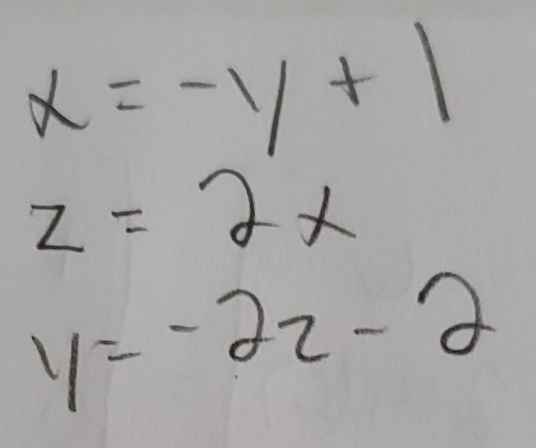 x = -y + 1
z = 2x
y = -2z - 2